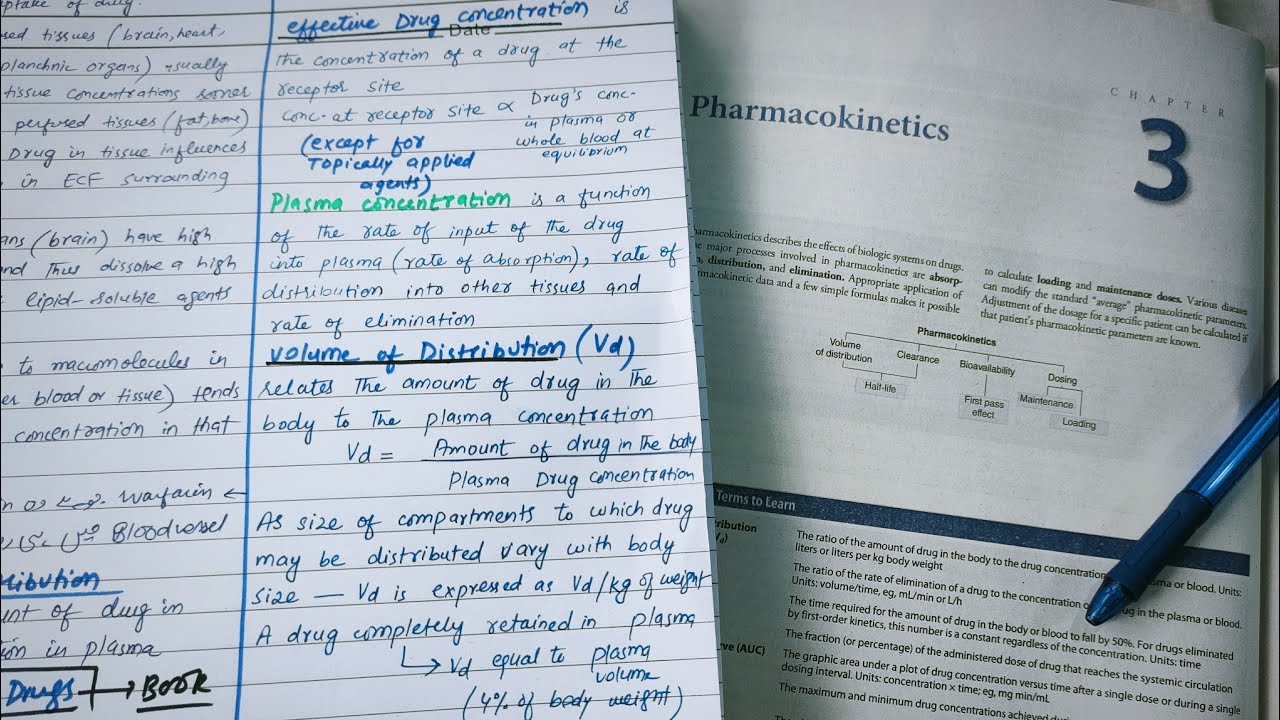 ptake of drug.
sed tissues (brain, heart,
planchnic organs) usually
tissue concentrations sooner
perfused tissues (fat, bone)
Drug in tissue influences
in ECF surrounding
ans (brain) have high
and Thus dissolve a high
lipid-soluble agents
to macromolecules in
er blood or tissue) tends
concentration in that
Warfarin ←
Blood vessel
tribution
unt of drug in
tion in plasma
Drugs → Book
effective Drug concentration is
Date
the concentration of a drug at the
receptor site
conc. at receptor site ∝ Drug's conc.
in plasma or
whole blood at
equilibrium
(except for
Topically applied
agents)
Plasma concentration is a function
of the rate of input of the drug
into plasma (rate of absorption), rate of
distribution into other tissues and
rate of elimination
Volume of Distribution (Vd)
relates The amount of drug in The
body to The plasma concentration
Vd = Amount of drug in The body
Plasma Drug concentration
As size of compartments to which drug
may be distributed vary with body
size — Vd is expressed as Vd/kg of weight
A drug completely retained in plasma
↳ Vd equal to plasma
volume
(4% of body weight)
CHAPTER
3
Pharmacokinetics
armacokinetics describes the effects of biologic systems on drugs.
e major processes involved in pharmacokinetics are absorp-
n, distribution, and elimination. Appropriate application of
macokinetic data and a few simple formulas makes it possible
to calculate loading and maintenance doses. Various diseases
can modify the standard "average" pharmacokinetic parameters.
Adjustment of the dosage for a specific patient can be calculated if
that patient's pharmacokinetic parameters are known.
Pharmacokinetics
Volume
of distribution
Clearance
Bioavailability
Dosing
Half-life
First pass
effect
Maintenance
Loading
Terms to Learn
tribution
d)
The ratio of the amount of drug in the body to the drug concentration sma or blood. Units:
liters or liters per kg body weight
The ratio of the rate of elimination of a drug to the concentration o ug in the plasma or blood.
Units: volume/time, eg, mL/min or L/h
The time required for the amount of drug in the body or blood to fall by 50%. For drugs eliminated
by first-order kinetics, this number is a constant regardless of the concentration. Units: time
The fraction (or percentage) of the administered dose of drug that reaches the systemic circulation
rve (AUC)
The graphic area under a plot of drug concentration versus time after a single dose or during a single
dosing interval. Units: concentration × time; eg, mg min/mL
The maximum and minimum drug concentrations achieved